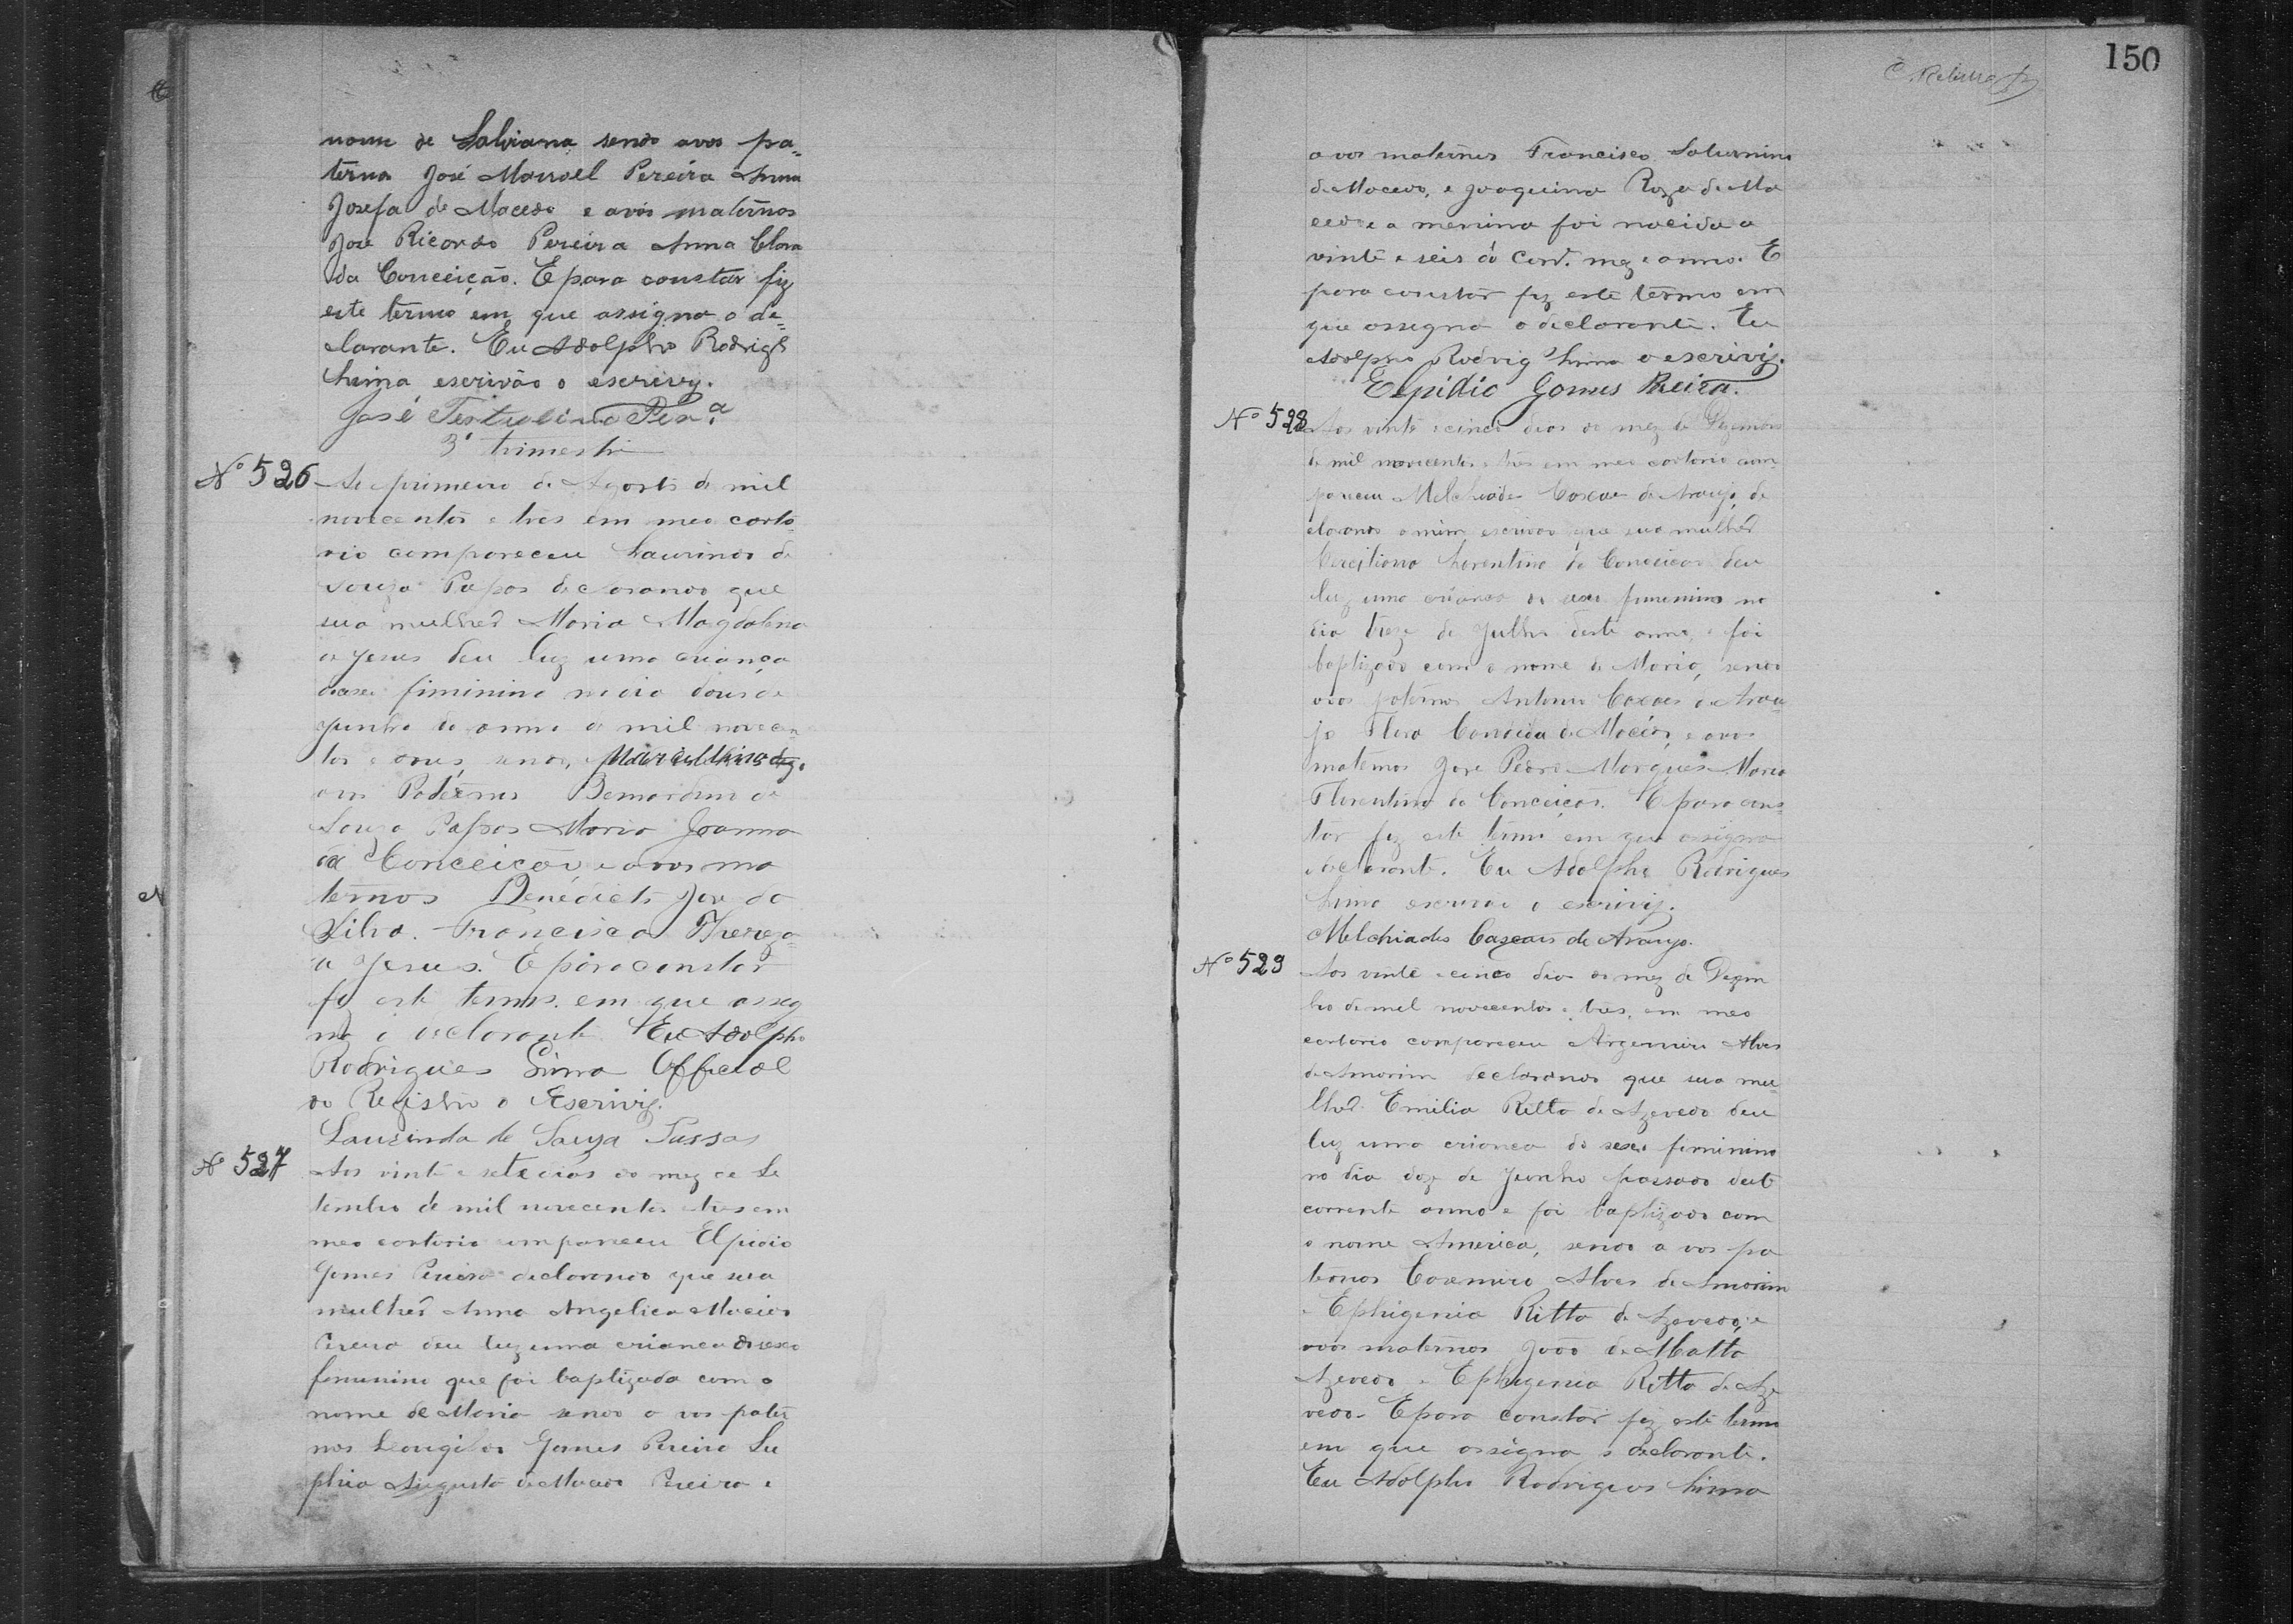 nome de Salviana sendo avos pa-
terna José Manoel Pereira Anna
Josefa de Macedo e avós maternos
Jose Ricardo Pereira Anna Clara
da Conceição. E para constar fiz
este termo em que assigna o de-
clarante. Eu Adolpho Rodrigs
Lima escrivão o escrevy.
José Tertulino Perª
3º trimestre
Nº 526
Ao primeiro de Agosto de mil
novecentos e tres em meo carto
rio compareceu Laurindo de
Souza Passos declarando que
sua mulher Maria Magdalena
de Jesus deu luz uma criança
de sexo fiminino no dia dous de
Junho do anno de mil novecen
tos e tres, sendo, Marcellina
avos Paternos Bernardino de
Souza Passos Maria Joanna
da Conceição, e avos ma
ternos Benedicto Jose da
Silva. Francisca Thereza
de Jesus. E para constar
fiz este termo em que asseg
na o declarante Eu Adolpho
Rodrigues Lima Official
do Registro o Escrivy.
Laurindo de Souza Passos
Nº 527
Aos vinte e sete dias do mez de Se
tembro de mil novecentos e tres em
meo cartorio compareceu Elpidio
Gomes Pereira declarando que sua
mulher Anna Angelica Macedo
Pereira deu luz uma criança do sexo
feminino que foi baptizada com o
nome de Maria sendo a vos pater
nos Gomes Pereira Su
phia Augusta de Macedo Pereira e
150
avos maternos Francisco Saturnino
de Macedo, e Joaquina Roza de Ma
cedo e a menina foi nacida a
vinte e seis do Corr. mez e anno. E
para constar fiz este termo em
que assegna o declarante. Eu
Adolpho Rodrig Lima o escrivy.
Elpidio Gomes Pereira.
Nº 528
Aos vinte e cinco dias do mez de Dezembro
de mil novecentos e tres em meo cartorio com-
pareceu Melchiades Cascaes de Araujo, de
clarando a mim escrivão que sua mulher
Florentina da Conceição deu
luz uma criança do sexo femenino no
dia treze de Julho deste anno, e foi
baptizada com o nome de Maria, sendo
avos paternos Antonio Cascaes de Arau-
jo Flora Candida de Macedo, e avos
maternos Jose Pedro Marques Maria
Florentina da Conceição. E para cons-
tar fiz este termo em que assigna
o declarante. Eu Adolpho Rodrigues
Lima escrivão o escrivy.
Melchiades Cascaes de Araujo.
Nº 529
Aos vinte e cinco dias do mez de Dezem
bro de mil novecentos e tres, em meo
cartorio compareceu Argemiro Alves
de Amorim declarando que sua mu-
lher Emilia Ritta de Azevedo deu
luz uma criança do sexo feminino
no dia doze de Junho passado deste
corrente anno e foi baptizada com
o nome America, sendo a vos pa
ternos Casemiro Alves de Amorim
e Ephigenia Ritta de Azevedo, e
avos maternos João de Matto
Azevedo e Ephigenia Ritta de Aze
vedo. E para constar fiz este termo
em que assigna o declarante.
Eu Adolpho Rodrigues Lima